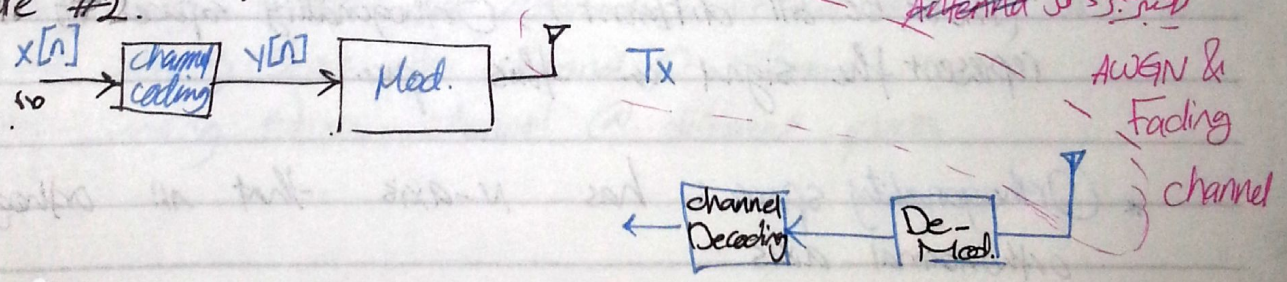 #2.
x[n]
channel
coding
y[n]
Mod.
Tx
AWGN &
Fading
channel
channel
Decoding
De-
Mod.